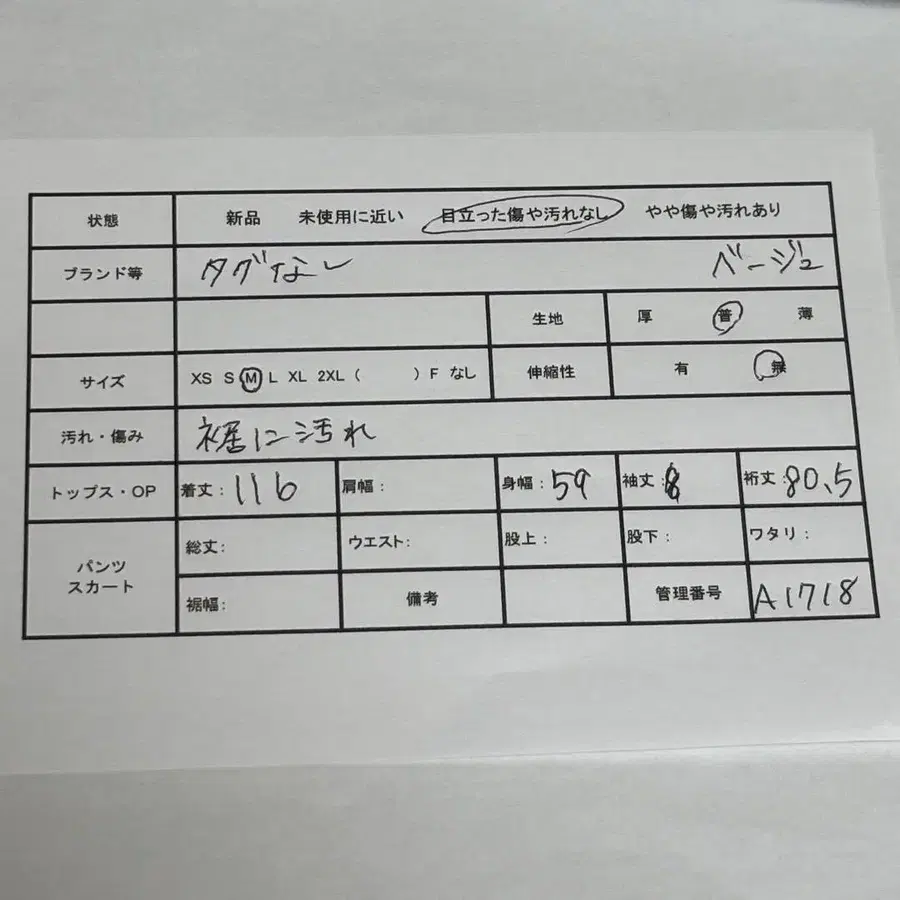 状態 新品 未使用に近い 目立った傷や汚れなし やや傷や汚れあり
ブランド等 タグなし ベージュ
生地 厚 普 薄
サイズ XS S M L XL 2XL ( ) F なし 伸縮性 有 無
汚れ・傷み 裾に汚れ
トップス・OP 着丈:116 肩幅: 身幅:59 袖丈:8 裄丈:80.5
パンツ スカート 総丈: ウエスト: 股上: 股下: ワタリ:
裾幅: 備考 管理番号 A1718